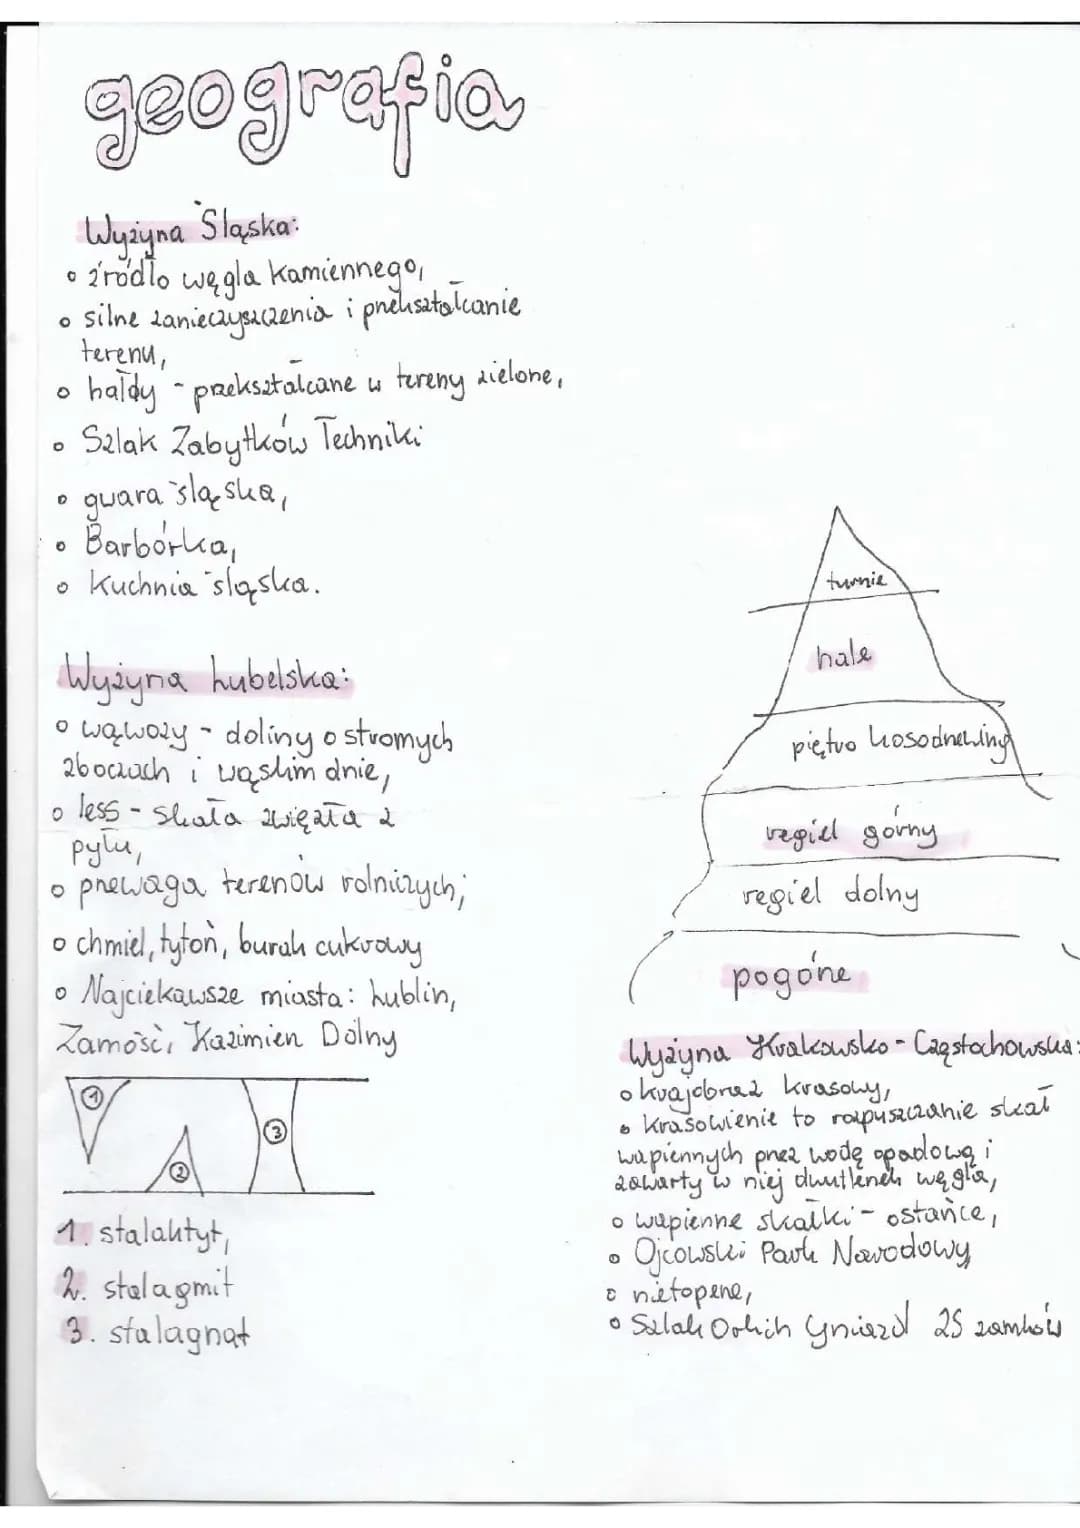 geografia
Wyżyna Śląska:
źródło węgla kamiennego,
silne zanieczyszczenia i przekształcanie
terenu,
hałdy - przekształcane w tereny zielone,
Szlak Zabytków Techniki
gwara śląska,
Barbórka,
kuchnia śląska.
Wyżyna Lubelska:
wąwozy - doliny o stromych
zboczach i wąskim dnie,
less - skała zwięzła z
pyłu,
przewaga terenów rolniczych;
chmiel, tytoń, burak cukrowy
Najciekawsze miasta: Lublin,
Zamość, Kazimierz Dolny
1
2
3
1. stalaktyt,
2. stalagmit
3. stalagnat
turnie
hale
piętro kosodrzewiny
regiel górny
regiel dolny
pogórze
Wyżyna Krakowsko - Częstochowska:
krajobraz krasowy,
krasowienie to rozpuszczanie skał
wapiennych przez wodę opadową i
zawarty w niej dwutlenek węgla,
wapienne skałki - ostańce,
Ojcowski Park Narodowy
nietoperze,
Szlak Orlich Gniazd 25 zamków